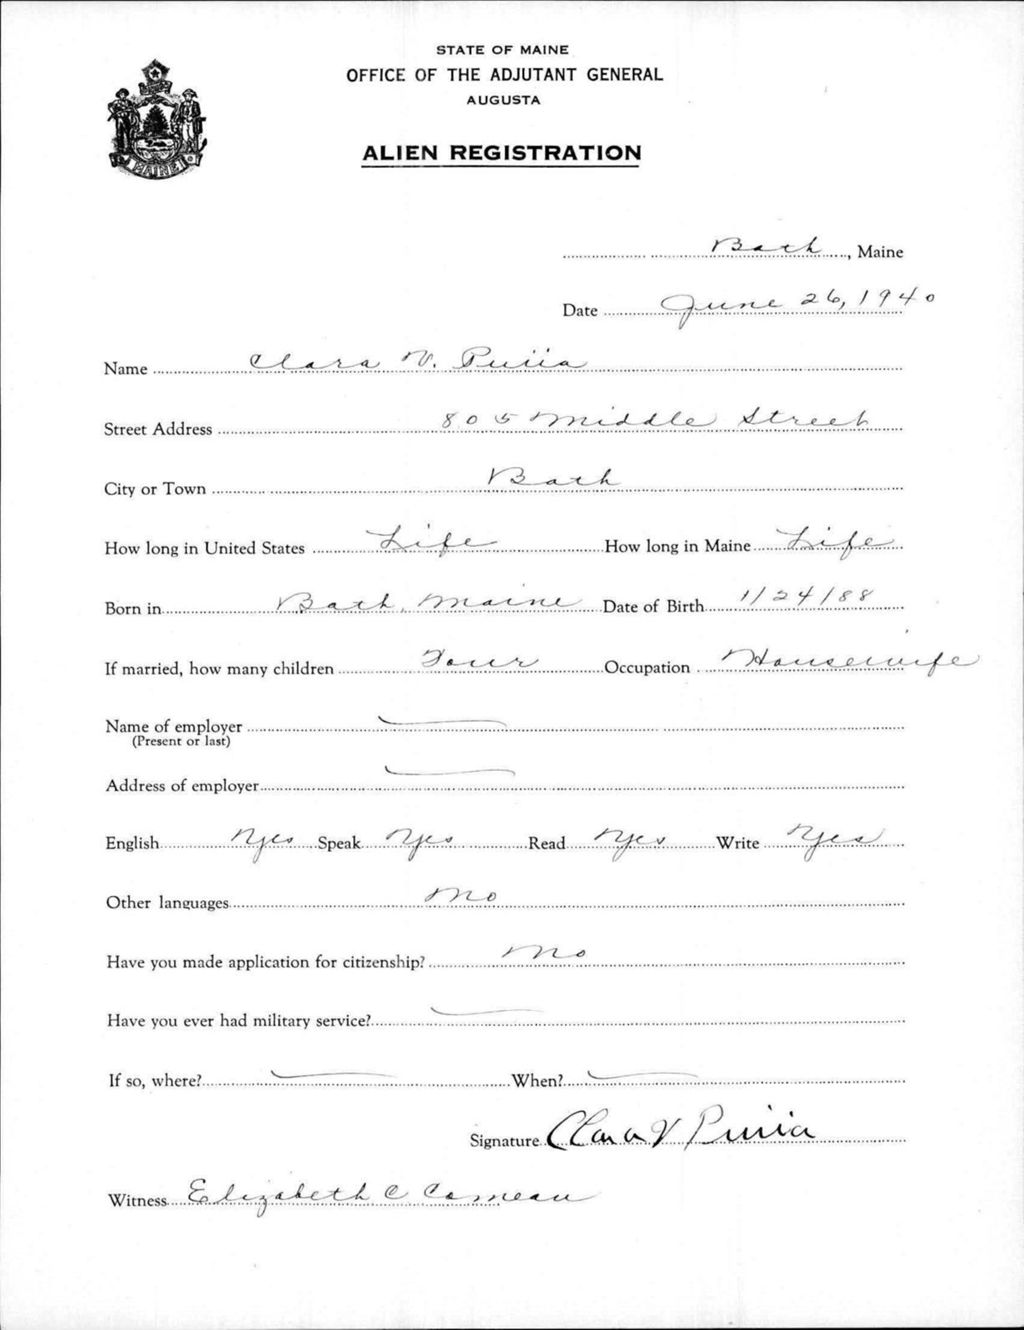 STATE OF MAINE
OFFICE OF THE ADJUTANT GENERAL
AUGUSTA
ALIEN REGISTRATION
MAINE
Bath, Maine
Date June 26, 1940
Name Clara V. Puiia
Street Address 805 Middle Street
City or Town Bath
How long in United States Life How long in Maine Life
Born in Bath, Maine Date of Birth 1/24/88
If married, how many children Four Occupation Housewife
Name of employer
(Present or last)
Address of employer
English Yes Speak Yes Read Yes Write Yes
Other languages No
Have you made application for citizenship? No
Have you ever had military service?
If so, where? When?
Signature Clara V Puiia
Witness Elizabeth C Comeau